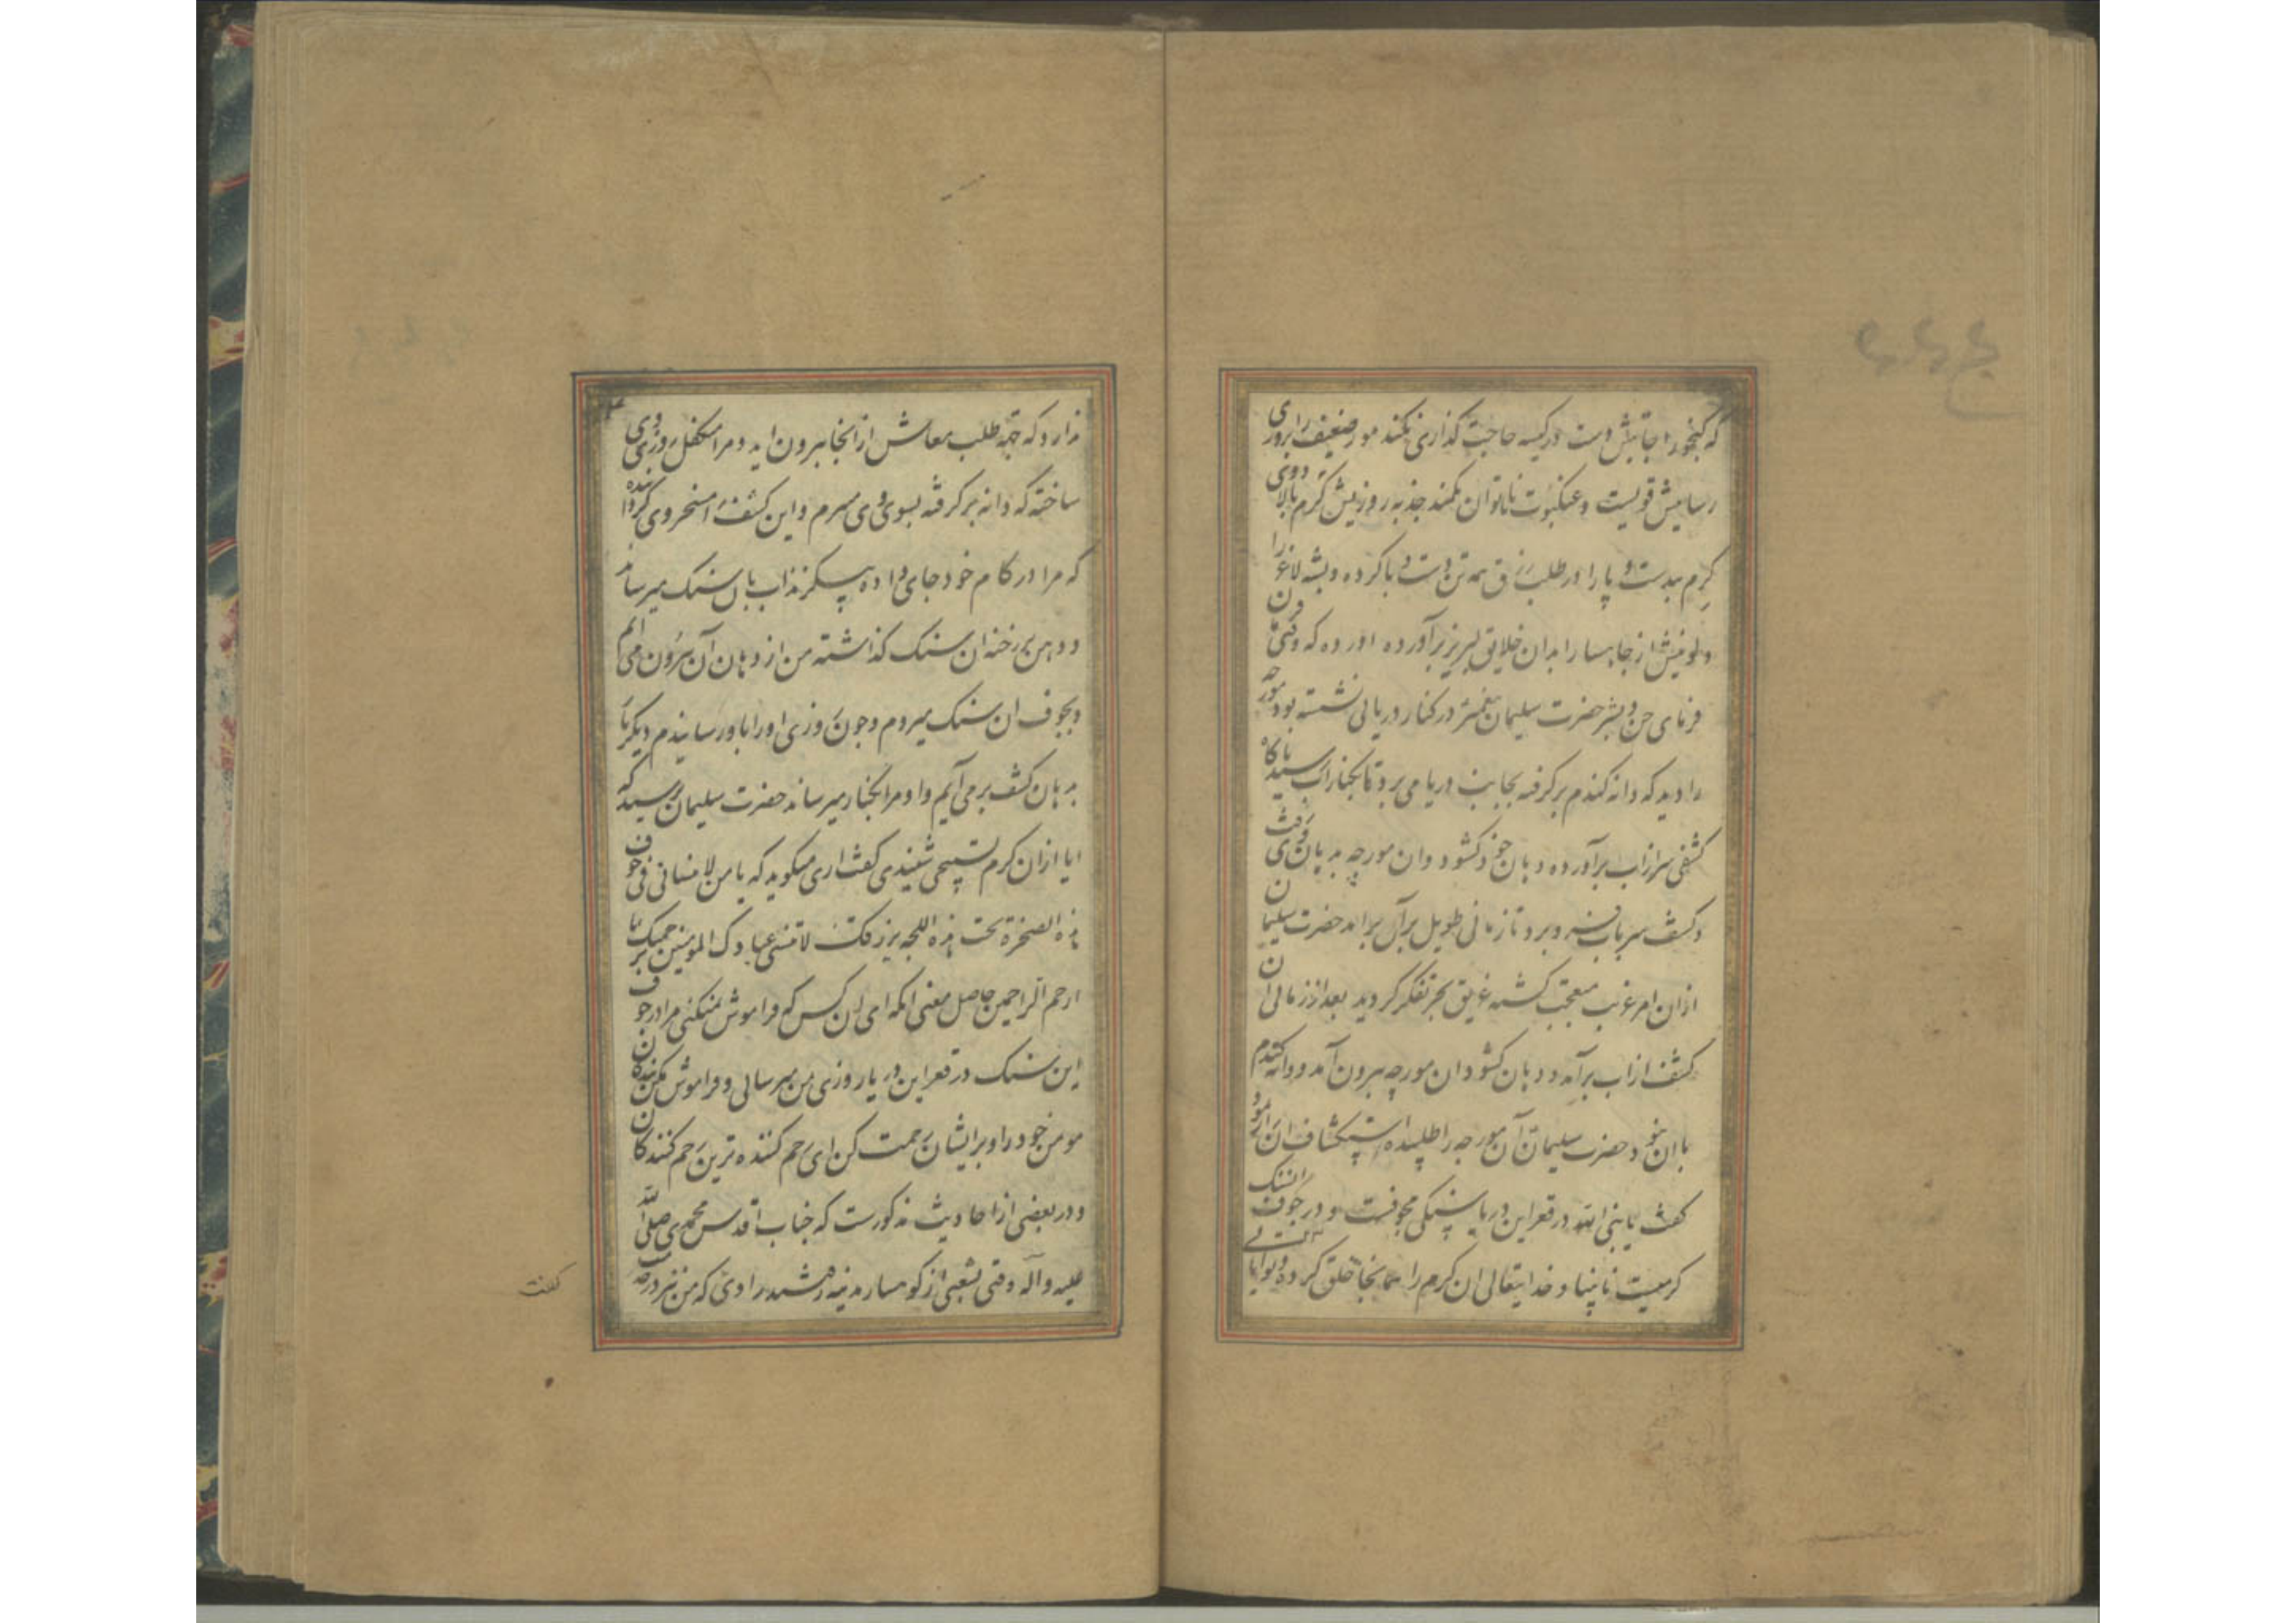 که گنجور اجابتش دست در کیسه حاجت گذاری نکند مور ضعیف را بروزی
رسانیش قویست و عنکبوت ناتوان بکمند جذبه روزیش گرم بالا دوی
کرم بیدست و پا را در طلب رزق همه تن دست و پا کرده و پشه لاغر را
از خلایق لبریز برآورده اورده که وقتی قرن
فرمای جن و بشر حضرت سلیمان پیغمبر در کنار دریایی نشسته بود مورچه
را دید که دانه گندم برگرفته بجانب دریا می برد تا بکنار اب رسید ناکاه
کشفی سر از اب برآورده دهان خود کشود و ان مورچه بدهان وی رفت
و کشف سر باب فرو برد و تا زمانی طویل بر آن برامد حضرت سلیمان
ازان امر غریب متعجب کشته غریق بحر تفکر کردید بعد از زمانی ان
کشف از اب برآمد و دهان کشود ان مورچه بیرون آمد و دانه کندم
با ان نبود حضرت سلیمان آن مورچه را طلبیده استکشاف ان امر نمود
کفت یا نبی الله در قعر این دریا سنکی مجوفست و در جوف ان سنک
کرمیست نابینا و خدایتعالی ان کرم را همانجا خلق کرده و توانایی
ندارد که جهة طلب معاش از انجا بیرون اید و مرا متکفل روزی وی
ساخته که دانه برگرفته بسوی وی میبرم و این کشف را مسخر وی کردانیده
که مرا در کام خود جای داده پیکرند اب بان سنک میرساند
و دهن بر رخنه ان سنک کذاشته من از دهان آن بیرون می ایم
و بجوف ان سنک میروم و چون روزی او را باو رسانیدم دیگر بار
بدهان کشف برمی آیم و او مرا بکنار میرساند حضرت سلیمان پرسید که
ایا ازان کرم تسبیحی شنیدی کفت اری میکوید که یا من لا تنسانی فی جوف
هذه الصخرة تحت هذه اللجه برزقک لا تنس عبادک المومنین برحمتک یا
ارحم الراحمین حاصل معنی انکه ای ان کس که فراموش نمیکنی مرا در جوف
این سنک در قعر این دریا روزی من میرسانی و فراموش مکن بندکان
مومن خود را و بر ایشان رحمت کن ای رحم کننده ترین رحم کنندکان
و در بعضی از احادیث مذکورست که جناب اقدس محمدی صلی الله
علیه و آله وقتی بشعبی از کوهسار مدینه رسید
کفت